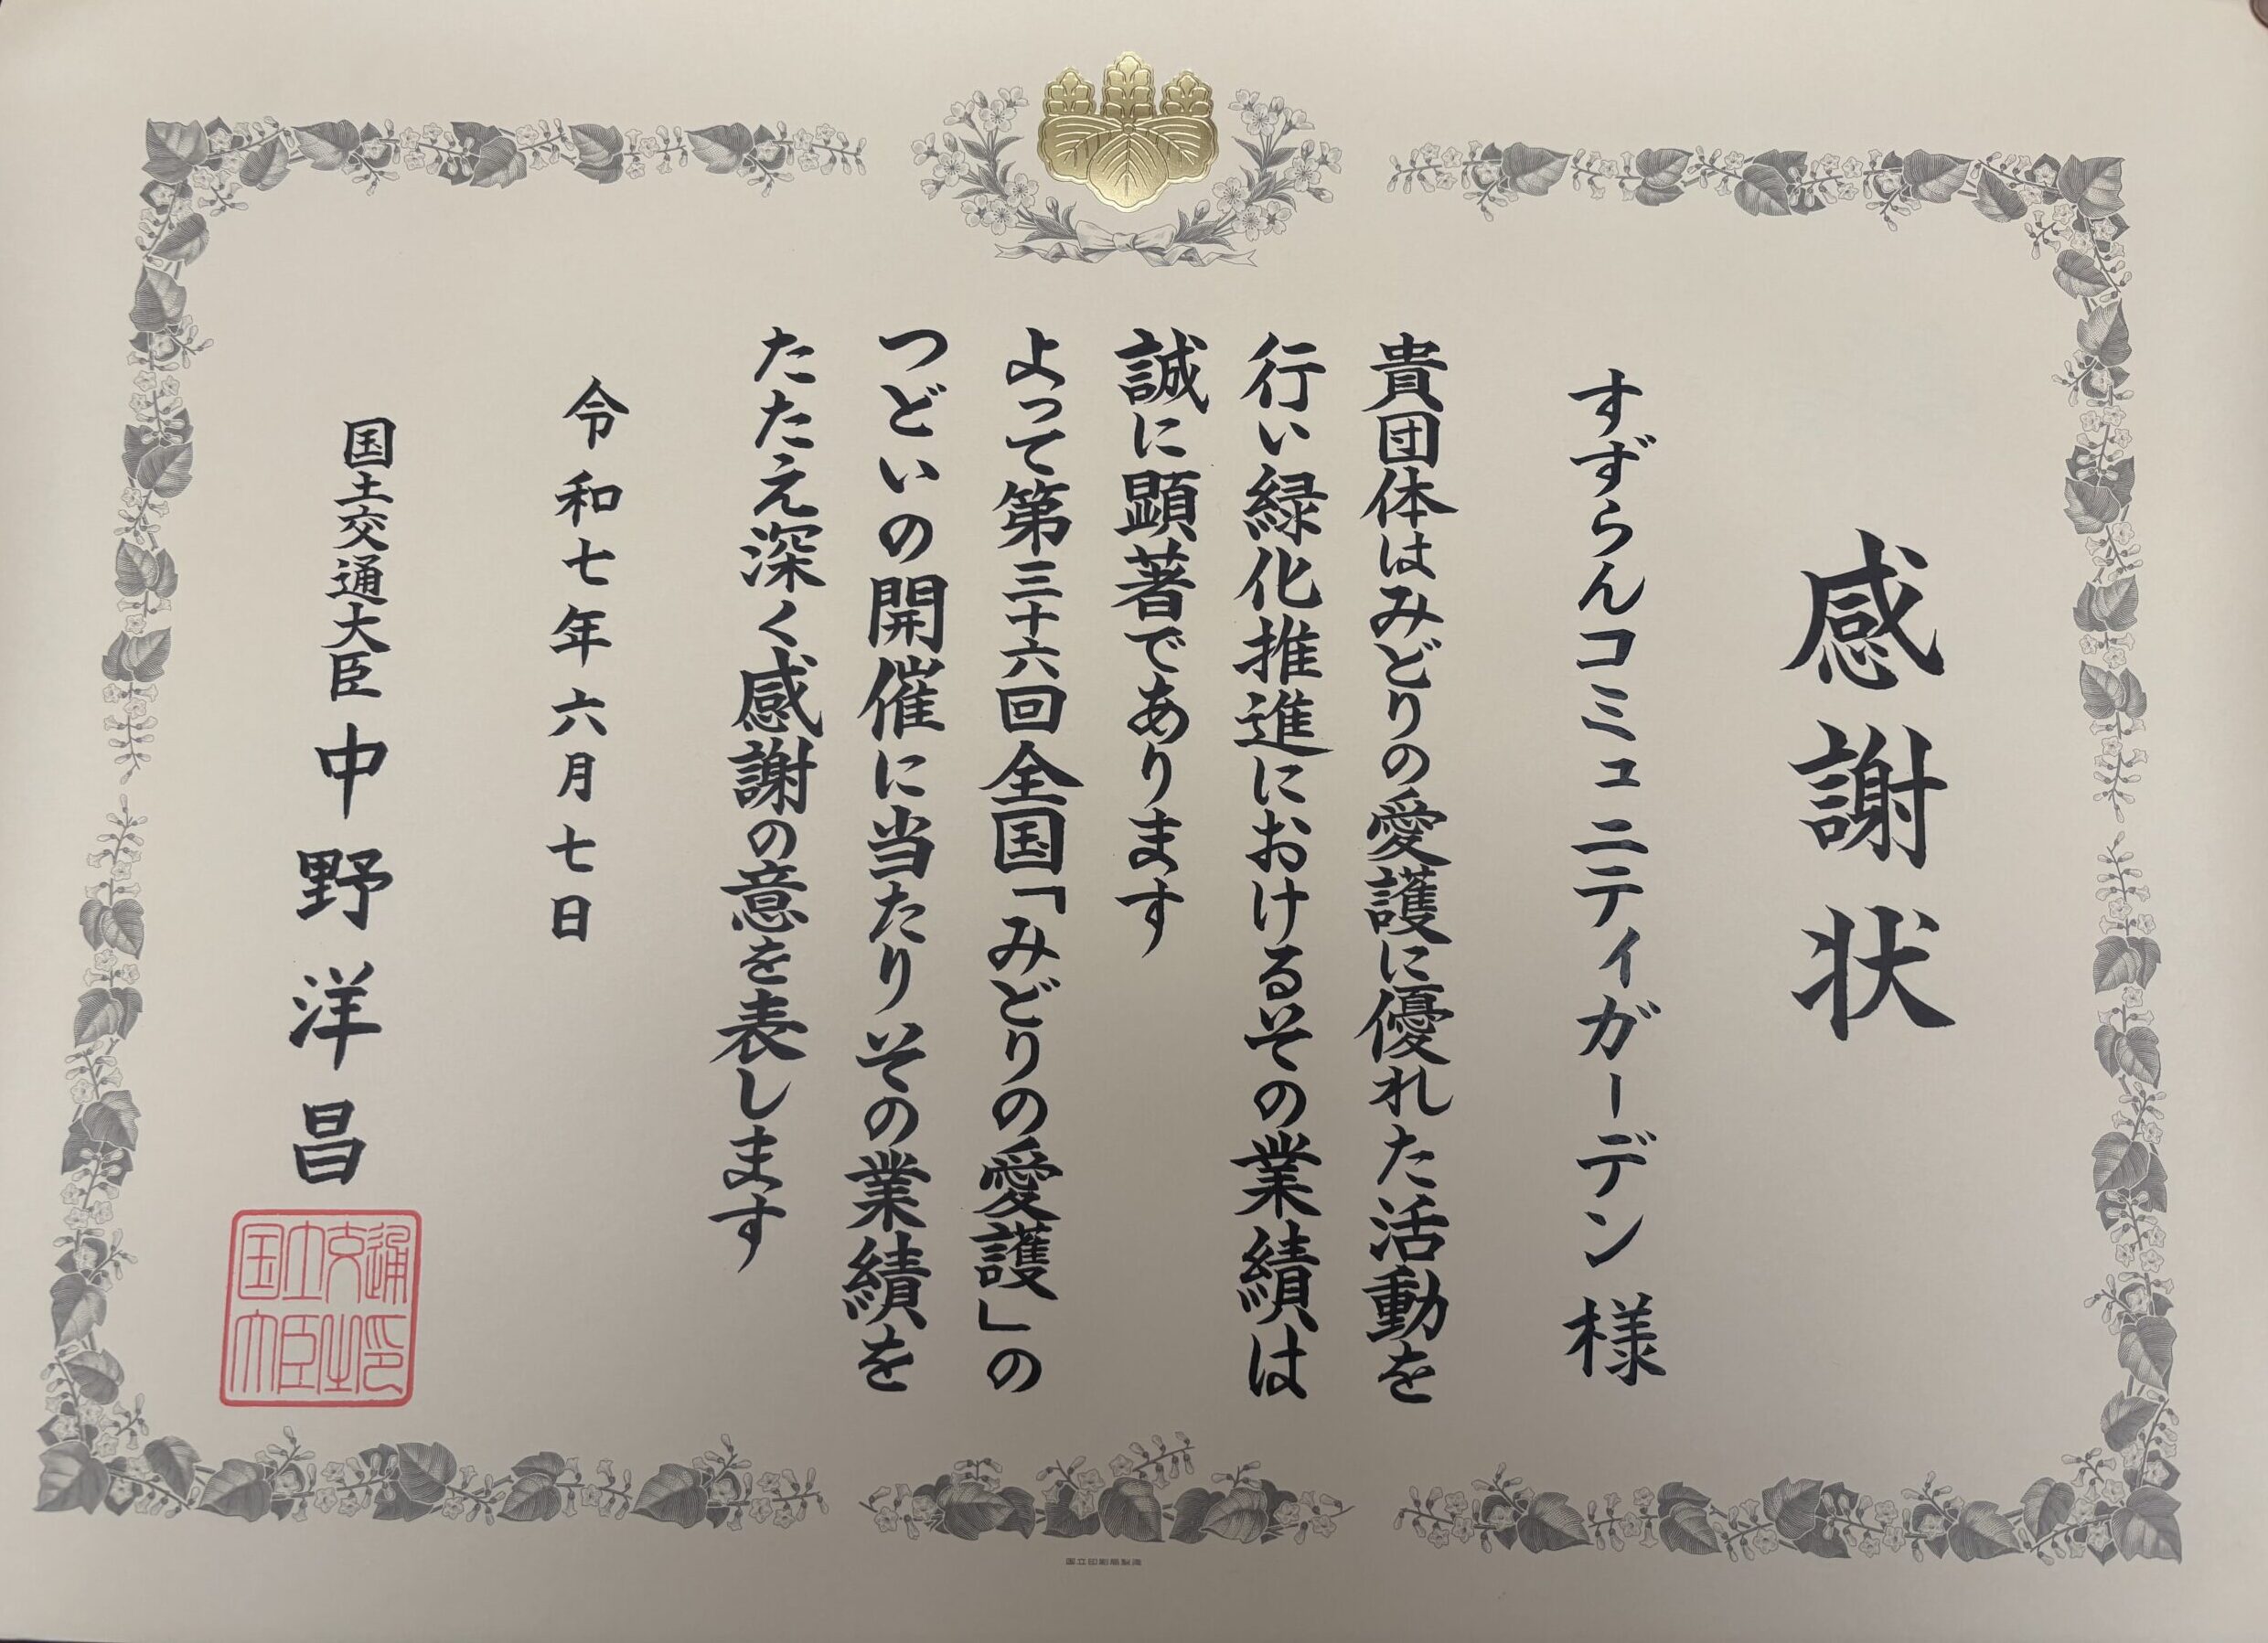 感謝状
すずらんコミュニティガーデン様
貴団体はみどりの愛護に優れた活動を
行い緑化推進におけるその業績は
誠に顕著であります
よって第三十六回全国「みどりの愛護」の
つどいの開催に当たりその業績を
たたえ深く感謝の意を表します
令和七年六月七日
国土交通大臣 中野洋昌
国土交通
大臣之印
国立印刷局製造